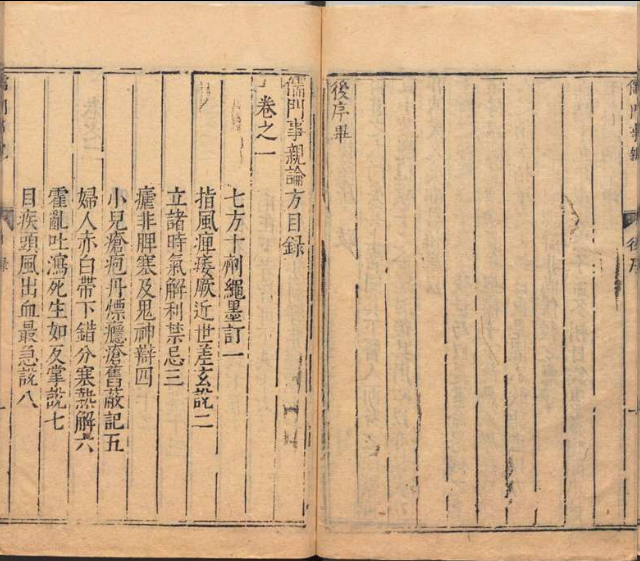 後序
後序畢
儒門事親論方目録
卷之一
七方十劑繩墨訂一
指風痺痿厥近世差玄說二
立諸時氣解利禁忌三
瘧非脾寒及鬼神辯四
小兒瘡疱丹熛癮瘡舊蔽記五
婦人赤白帶下錯分寒熱解六
霍亂吐瀉死生如反掌說七
目疾頭風出血最急說八